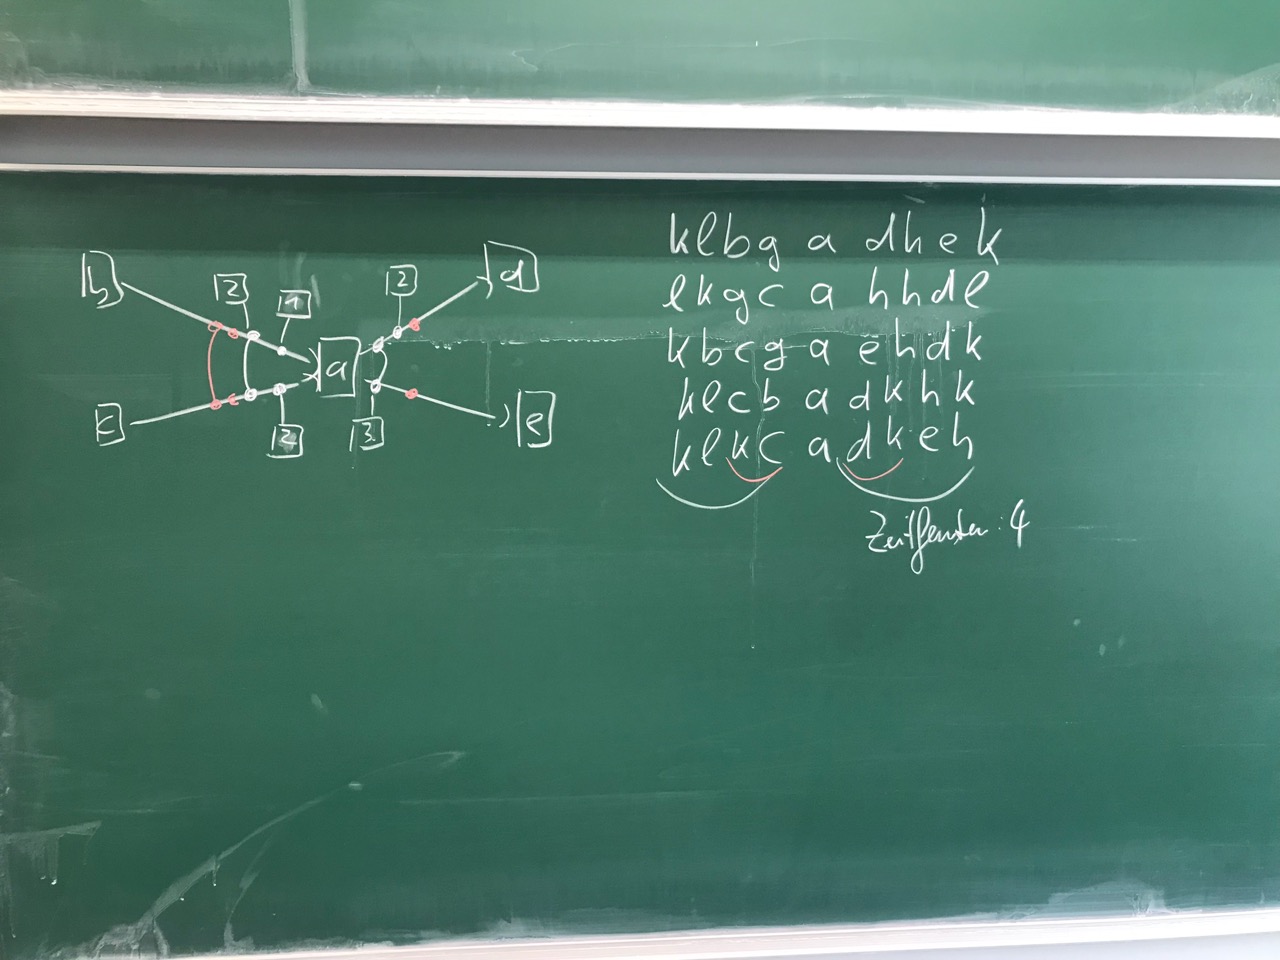 b
2
1
2
d
a
c
2
3
e
klbg a dhek
lkgc a hhdl
kbcg a ehdk
klcb a dkhk
klkc a dkeh
Zeitfenster: 4